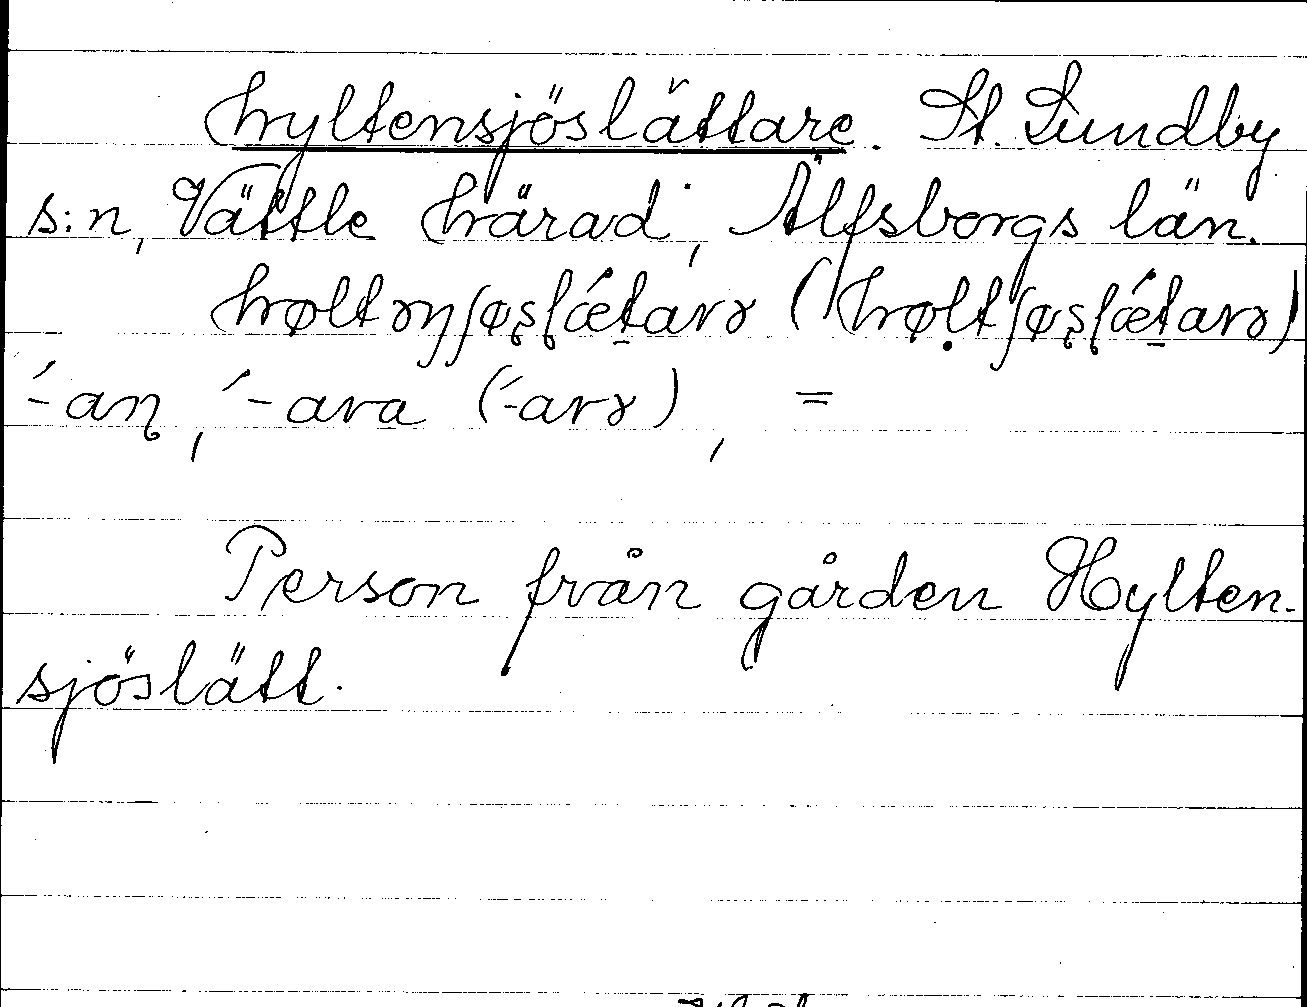 hyltensjöslättare. St. Lundby
s:n, Vättle härad, Älfsborgs län.
høltəŋʃøʂɭǽtarə (høḷtʃøʂɭǽtarə)
´-aɳ, ´-ara (´-arə), =
Person från gården Hylten-
sjöslätt.